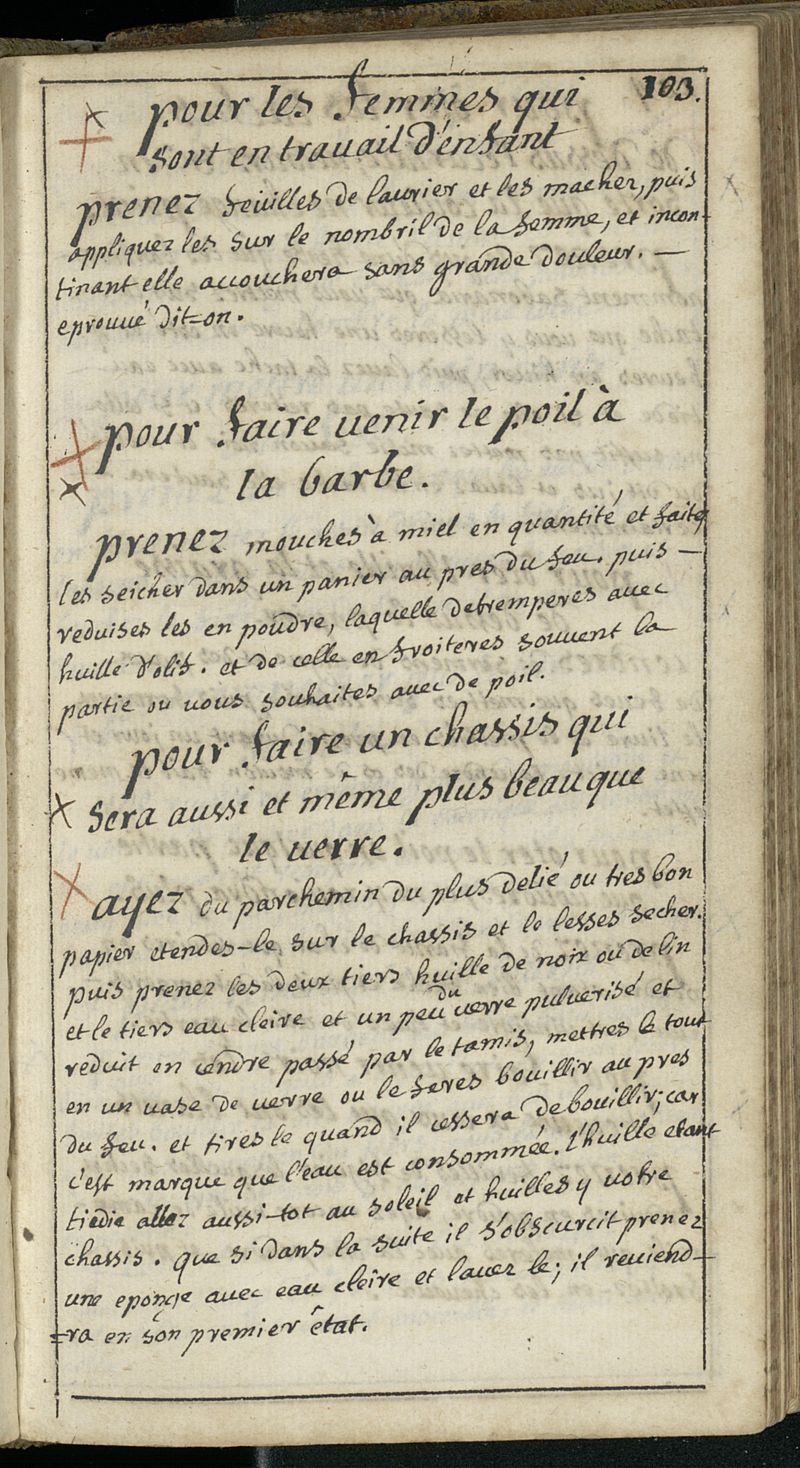 103.
pour les femmes qui
sont en travail d'enfant
prenez feuilles de laurier et les macher, puis
appliquez les sur le nombril de la femme, et incon-
tinant elle accouchera sans grande douleur. —
eprouué dit=on.
pour faire uenir le poil à
la barbe.
prenez mouches à miel en quantité et faites
les seicher dans un panier au pres du feu. puis —
reduises les en poudre, laquelle detremperes auec
huille d'oliз. et de celle en froiteres souuent la
partie ou uous souhaites auec de poil.
pour faire un chassis qui
sera aussi et même plus beau que
le uerre.
ayez du parchemin du plus delié ou tres bon
papier etendes-le sur le chassis et le lesses secher.
puis prenez les deux tiers huille de noix ou de lin
et le tiers eau cleire et un peu du uerre puluerisé et
reduit en cendre passé par le tamis, mettres le tout
en un uase de uerre ou le feres bouillir au pres
du feu. et tires le quand il cessera de bouillir; car
c'est marque que l'eau est consommée. l'huille etant
tiedie allez aussi-tot au soleil et huilles y uotre
chassis. que si dans la suite il s'obscurcit prenez
une eponge auec eau cleire et lauez le; il reuiend-
=ra en son premier êtat.